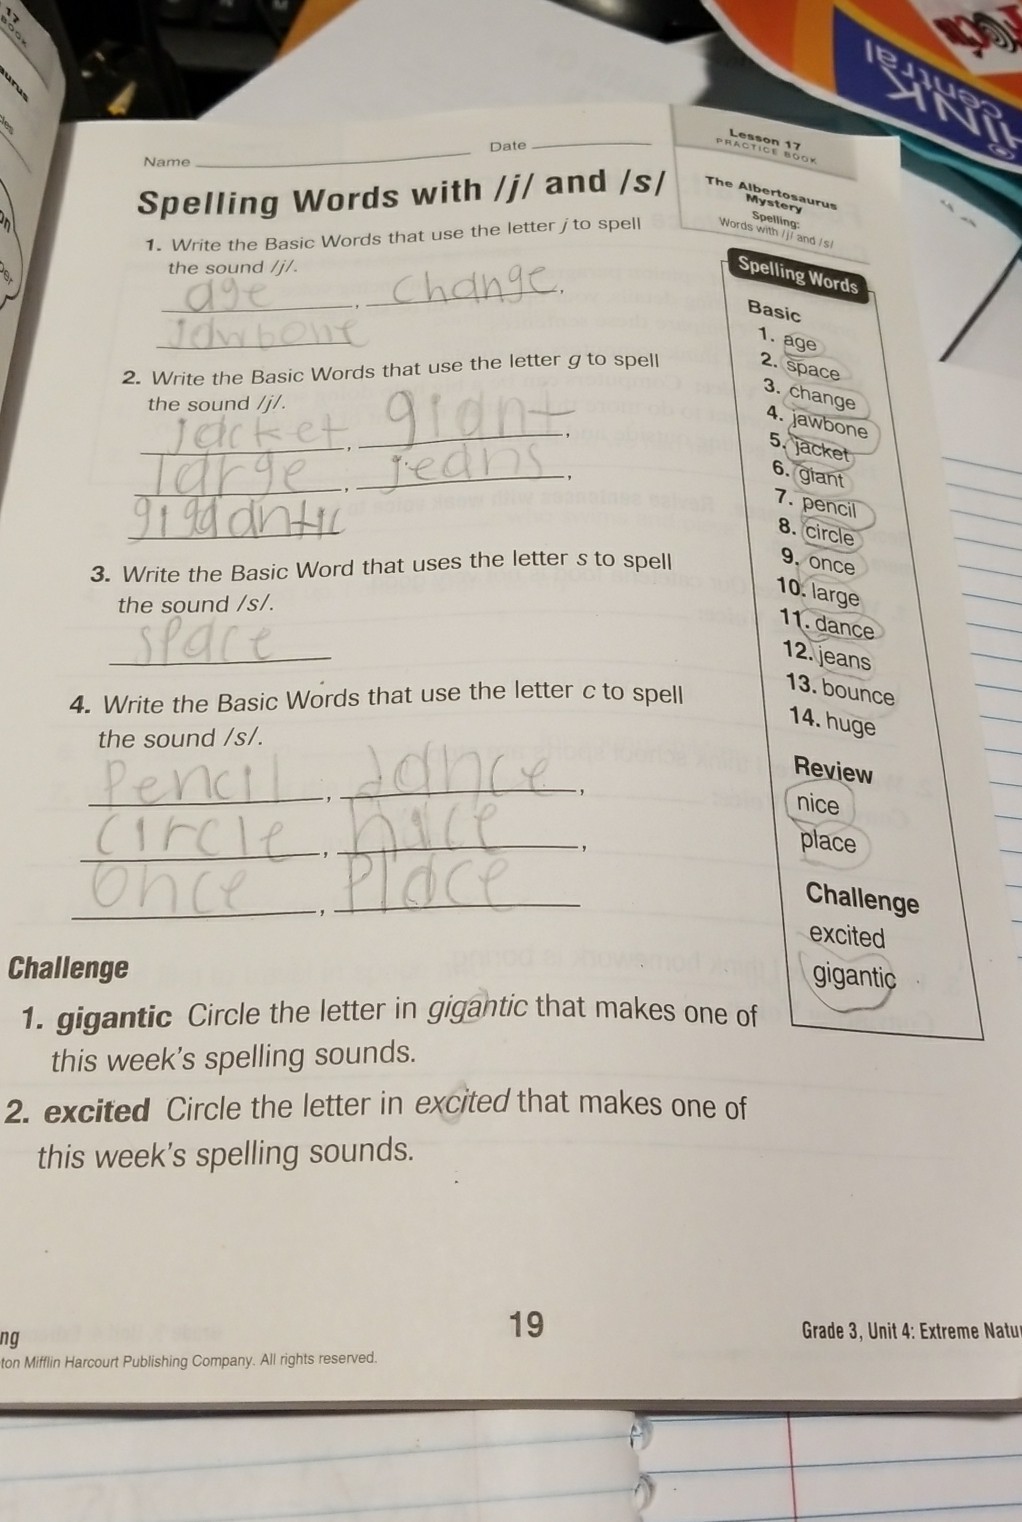 17
BOOK
aurus
Lesson 17
PRACTICE BOOK
Name
Date
The Albertosaurus
Mystery
Spelling:
Words with /j/ and /s/
Spelling Words with /j/ and /s/
1. Write the Basic Words that use the letter j to spell
the sound /j/.
age, change,
jawbone
2. Write the Basic Words that use the letter g to spell
the sound /j/.
jacket, giant,
large, jeans,
gigantic
3. Write the Basic Word that uses the letter s to spell
the sound /s/.
space
4. Write the Basic Words that use the letter c to spell
the sound /s/.
Pencil, dance,
circle, nice,
once, Place
Spelling Words
Basic
1. age
2. space
3. change
4. jawbone
5. jacket
6. giant
7. pencil
8. circle
9. once
10. large
11. dance
12. jeans
13. bounce
14. huge
Review
nice
place
Challenge
excited
gigantic
Challenge
1. gigantic Circle the letter in gigantic that makes one of
this week's spelling sounds.
2. excited Circle the letter in excited that makes one of
this week's spelling sounds.
19
ng
Grade 3, Unit 4: Extreme Natu
ton Mifflin Harcourt Publishing Company. All rights reserved.